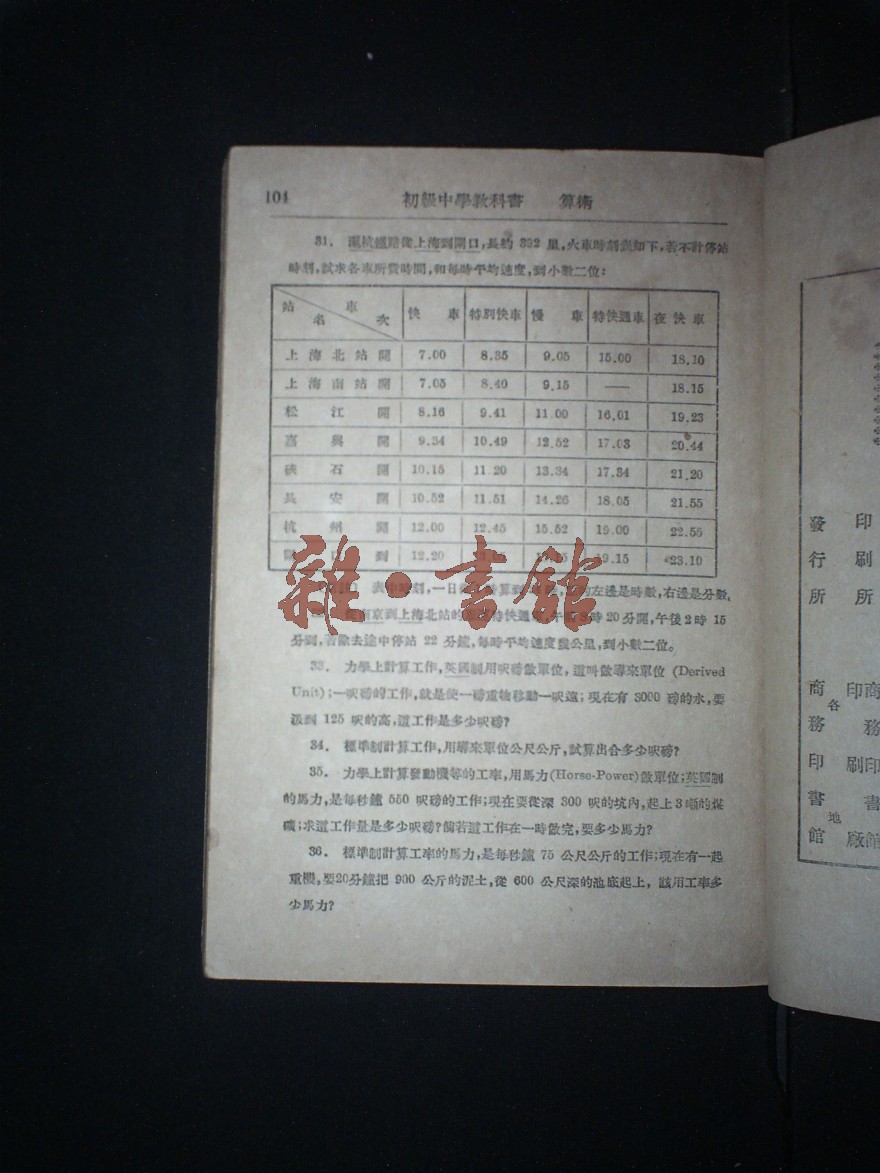 104 初級中學敎科書 算術
31. 滬杭鐵路從上海到閘口,長約 392 里,火車時刻表如下,若不計停站
時刻,試求各車所費時間,和每時平均速度,到小數二位:
站名 車次 快車 特別快車 慢車 特快通車 夜快車
上海北站開 7.00 8.35 9.05 15.00 18.10
上海南站開 7.05 8.40 9.15 —— 18.15
松江開 8.16 9.41 11.00 16.01 19.23
嘉興開 9.34 10.49 12.52 17.03 20.44
硤石開 10.15 11.20 13.34 17.34 21.20
長安開 10.52 11.51 14.26 18.05 21.55
杭州開 12.00 12.45 15.52 19.00 22.55
口到 12.20 19.15 23.10
表中時刻,一日 左邊是時數,右邊是分數,
南京到上海北站的 特快通車,午前 8時 20分開,午後 2 時 15
分到,若除去途中停站 22 分鐘,每時平均速度幾公里,到小數二位。
33. 力學上計算工作,英國制用呎磅做單位,這叫做導來單位 (Derived
Unit);一呎磅的工作,就是使一磅重物移動一呎遠;現在有 3000 磅的水,要
汲到 125 呎的高,這工作是多少呎磅?
34. 標準制計算工作,用導來單位公尺公斤,試算出合多少呎磅?
35. 力學上計算發動機等的工率,用馬力(Horse-Power)做單位;英國制
的馬力,是每秒鐘 550 呎磅的工作;現在要從深 300 呎的坑內,起上3噸的煤
礦;求這工作量是多少呎磅?倘若這工作在一時做完,要多少馬力?
36. 標準制計算工率的馬力,是每秒鐘 75 公尺公斤的工作;現在有一起
重機,要20分鐘把 900 公斤的泥土,從 600 公尺深的池底起上, 該用工率多
少馬力?
雜·書館
印刷所
發行所
印刷
商務印書館
商務印書館
各地
廠